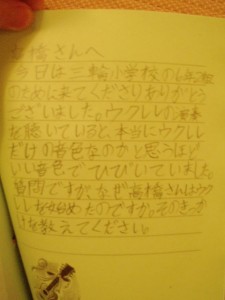 高橋さんへ
今日は三輪小学校の6年2組
のために来てくださりありがとう
ございました。ウクレレの音楽
を聴いていると、本当にウクレレ
だけの音色なのかと思うほど
いい音色でひびいていました。
質問ですが、なぜ高橋さんはウク
レレを始めたのですか。そのきっか
けを教えてください。